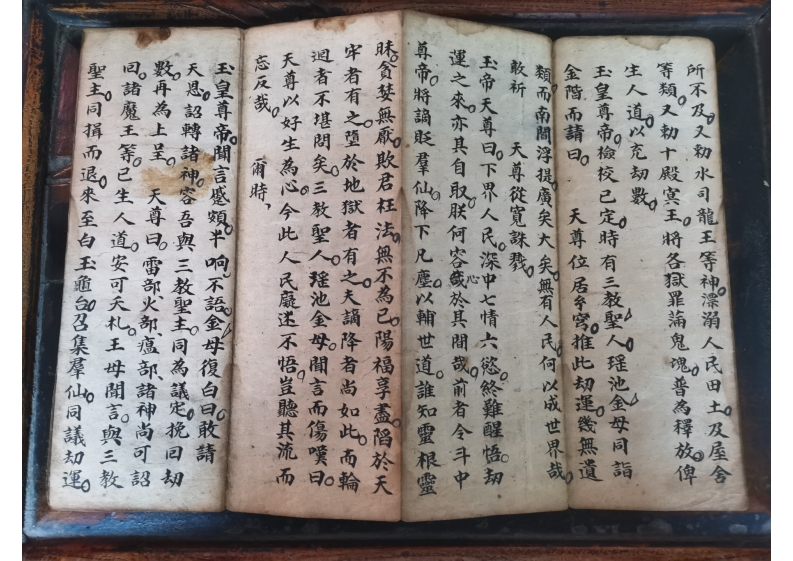 所不及又勅水司龍王等神漂溺人民田土及屋舍
等類又勅十殿冥王將各獄罪滿鬼魂普為釋放俾
生人道以充劫數
玉皇尊帝檢校已定時有三教聖人瑤池金母同詣
金階而請曰　天尊位居穹推此劫運幾無遺
類而南閻浮提廣矣大矣無有人民何以成世界哉
敢祈　天尊從寬誅戮
玉帝天尊曰下界人民深中七情六慾終難醒悟劫
運之來亦其自取朕何容心於其間哉前者令斗中
尊帝將謫貶羣仙降下凡塵以輔世道誰知靈根靈
昧貪婪無厭欺君枉法無不為已陽福享盡陷於天
牢者有之墮於地獄者有之夫謫降者尚如此而輪
迴者不堪問矣三教聖人瑤池金母聞言而傷嘆曰
天尊以好生為心今此人民癡迷不悟豈聽其流而
忘反哉　爾時
玉皇尊帝聞言蹙頞半响不語金母復白曰敢請
天恩詔轉諸神容吾與三教聖主同為議定挽回劫
數再為上呈　天尊曰雷部火部瘟部諸神尚可詔
回諸魔王等已生人道安可夭札王母聞言與三教
聖主同揖而退來至白玉龜台召集羣仙同議劫運